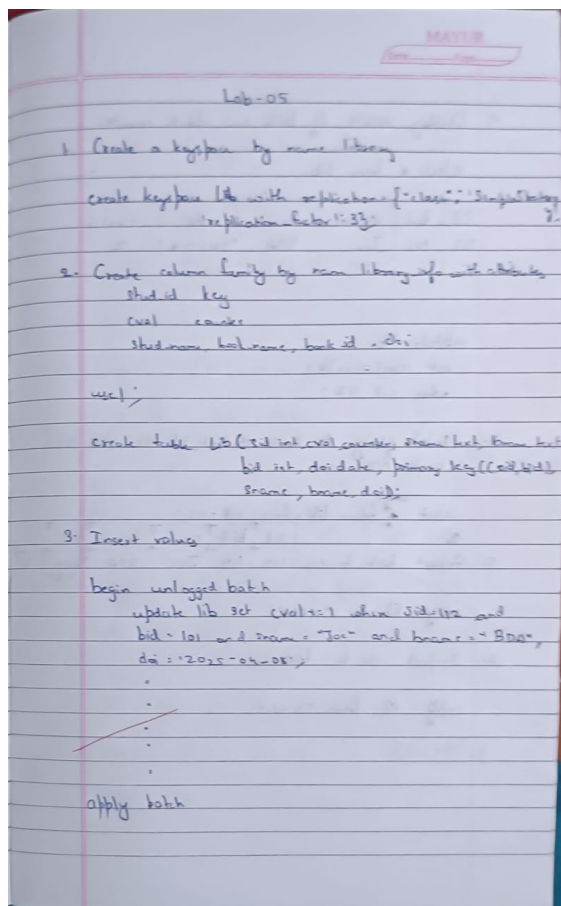 MAYUR
Lab-05
1. Create a keyspace by name library
create keyspace Lib with replication = {"class":
'replication_factor': 3};
2. Create column family by name library with attributes
stud.id key
cval counter
stud.name, book.name, book id, doi
use l;
create table Lib (sid int, cval counter, sname text, bname text
bid int, doi date, primary key ((sid, bid),
sname, bname, doi));
3. Insert values
begin unlogged batch
update lib set cval+=1 where sid=112 and
bid = 101 and sname = "Joe" and bname = "BDA",
doi = '2025-04-08';
apply batch